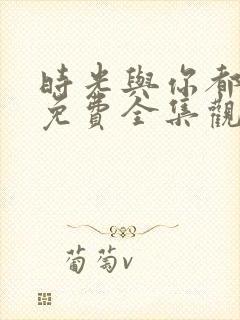 時光與你都
免費全集觀
葡萄v